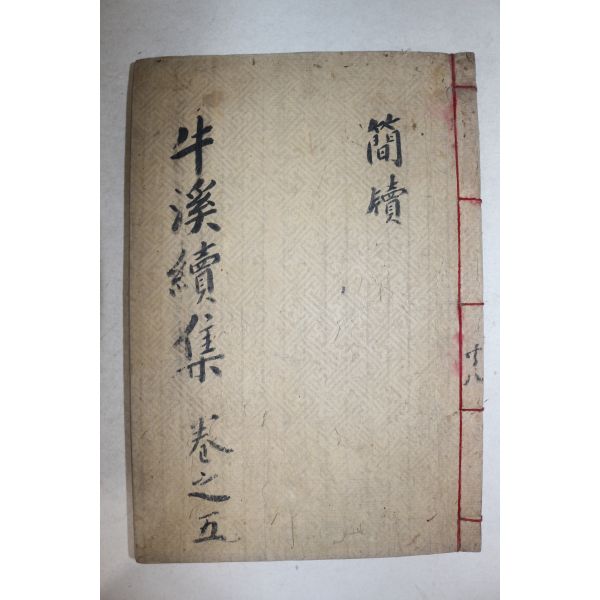 簡牘
牛溪續集 卷之五
共八